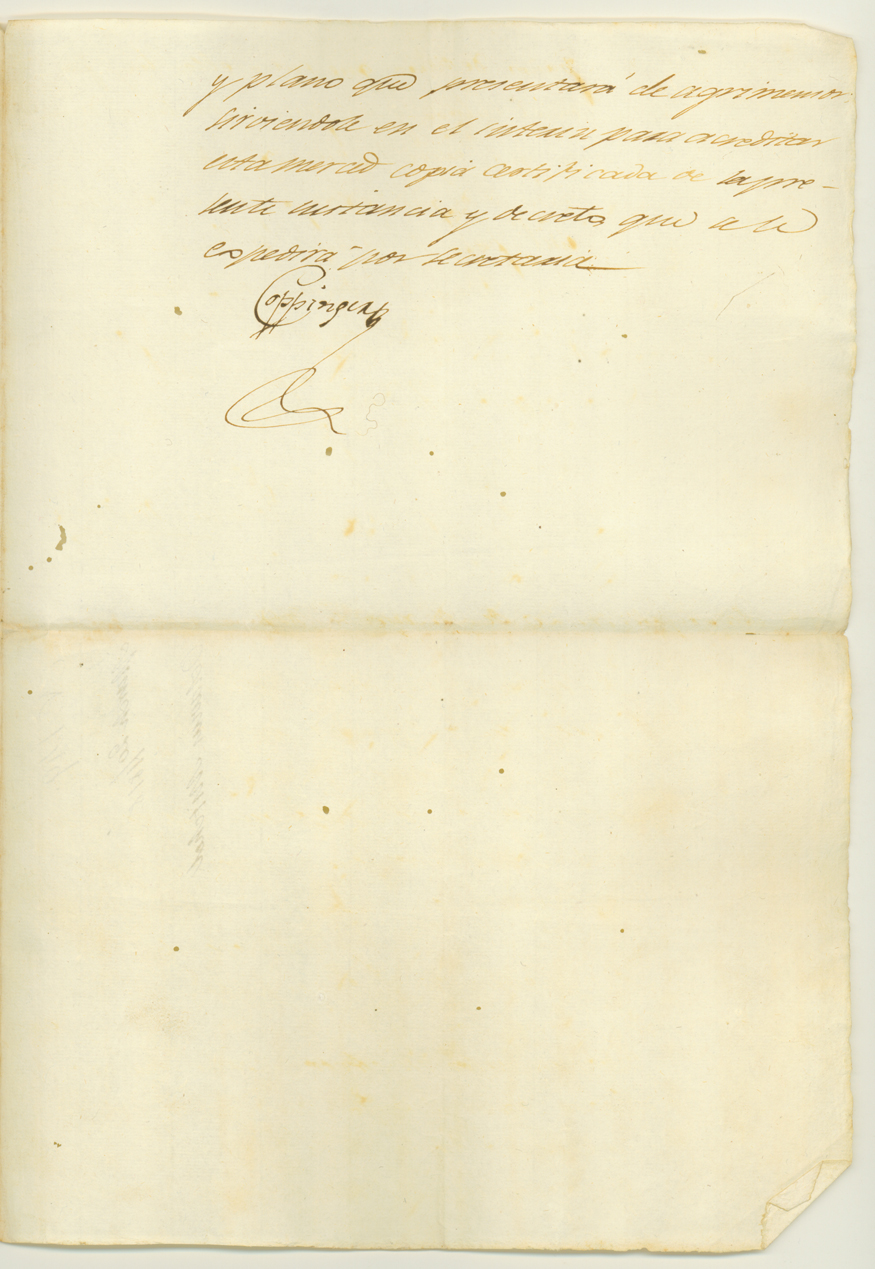 y plano que presentará de agrimensor
sirviendole en el interin para acreditar
esta merced copia certificada de la pre-
sente instancia y decreto, que a se
espedirá por secretaria
Coppinger